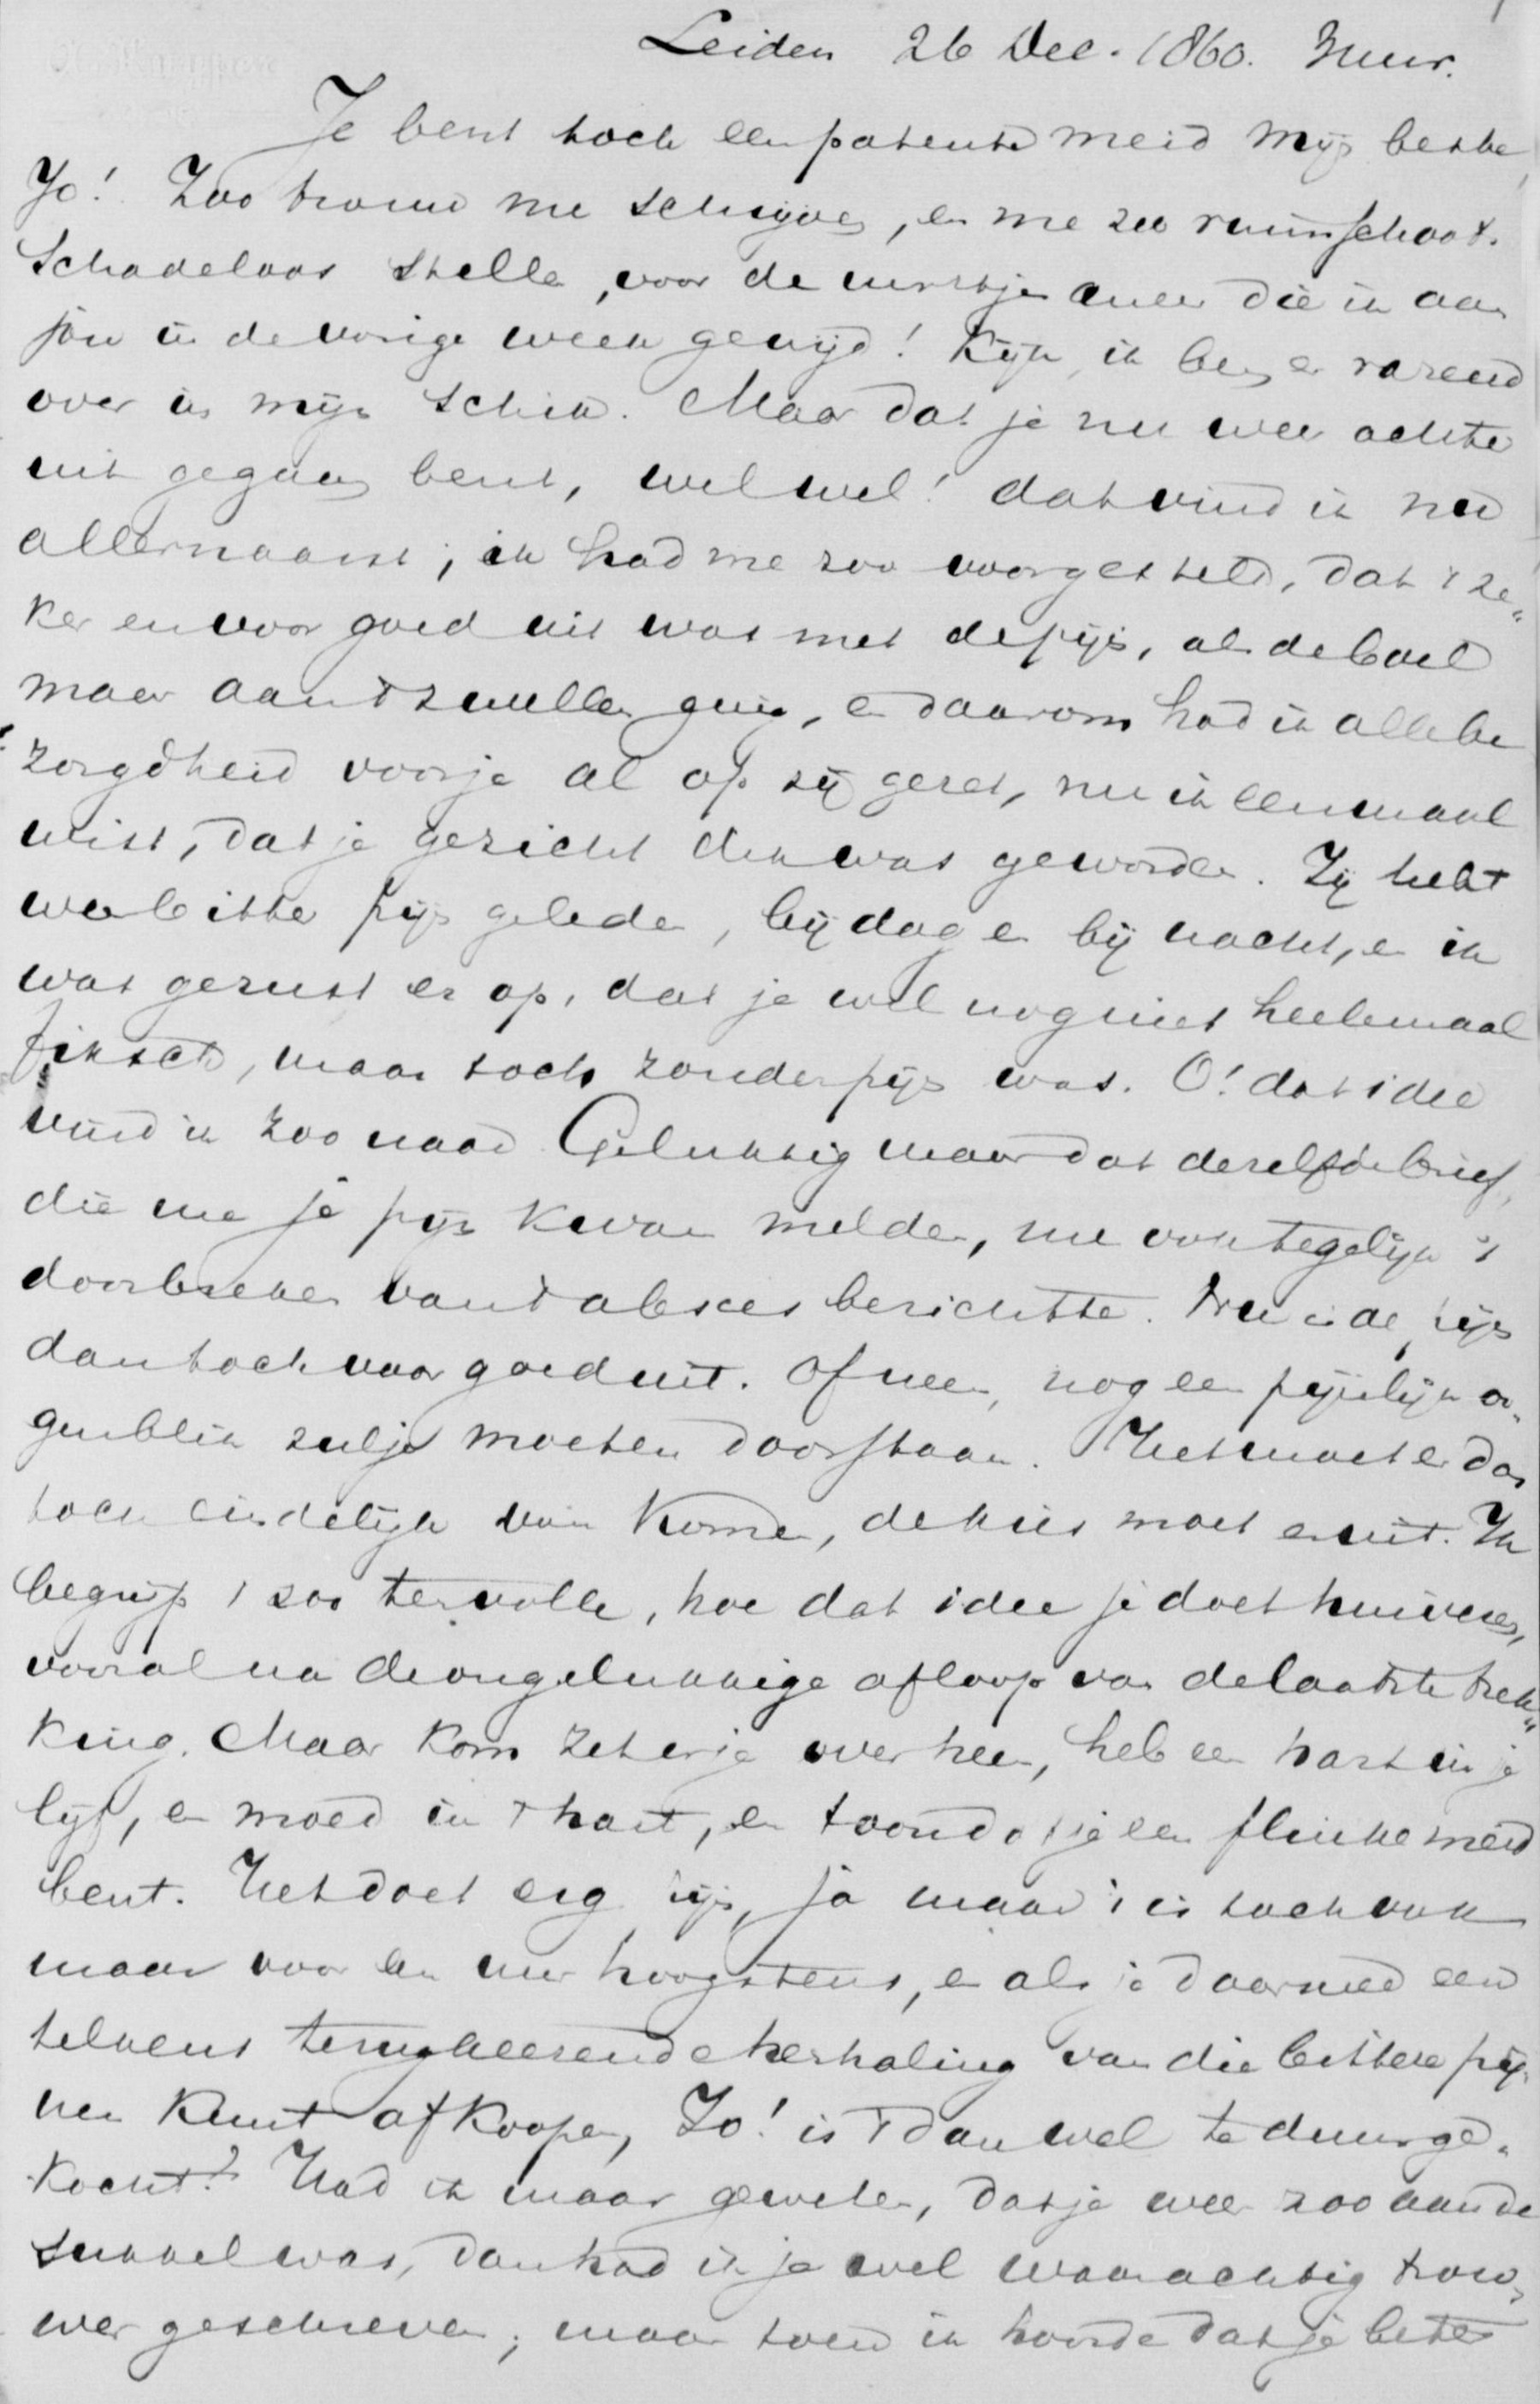 Leiden 26 Dec. 1860. 3 uur.
Je bent toch een patente meid mijn beste
Jo! Zoo trouw me schrijven, en me zoo ruimschoots
schadeloos stellen, voor de uurtjes die ik aan
jou in de vorige week gewijd! Kijk, ik ben er razend
over in mijn schik. Maar dat je nu weer achter
uit gegaan bent, wel wel! dat vind ik nu
allernaarst; ik had me zoo voorgesteld, dat 't ze"
ker en voor goed uit was met de pijn, als de boel
maar aan 't zwellen ging, en daarom had ik alle be
zorgdheid voor je al op zij gezet, nu ik eenmaal
wist, dat je gezicht dik was geworden. Zij hebt
weer bitter pijn geleden, bij dag en bij nacht, en ik
was gerust er op, dat je wel nog niet heelemaal
fiksch, maar toch zonder pijn was. O! dat idee
vind ik zoo naar. Gelukkig maar dat dezelfde brief,
die me je pijn kwam melden, me ook tegelijk 't
doorbreken van 't absces berichtte. Nu is de pijn
dan toch voor goed uit. Of neen, nog een pijnlijk oo"
genblik zul je moeten doorstaan. Het moet er dan
toch eindelijk van komen, de kies moet er uit. Ik
begrijp 't zoo ten volle, hoe dat idee je doet huiveren,
vooral na de ongelukkige afloop van de laatste trek"
king. Maar kom zet er je over heen, heb een hart in je
lijf, en moed in 't hart, en toon dat je een flinke meid
bent. Het doet erg pijn, ja maar 't is toch ook
maar voor een uur hoogstens, en als je daarmed een
telkens terugkeerende herhaling van die bittere pij"
nen kunt afkoopen, Jo! is 't dan wel te duur ge"
kocht? Had ik maar geweten, dat je weer zoo aan de
sukkel was, dan had ik je wel waarachtig trou"
wer geschreven; maar toen ik hoorde dat je beter